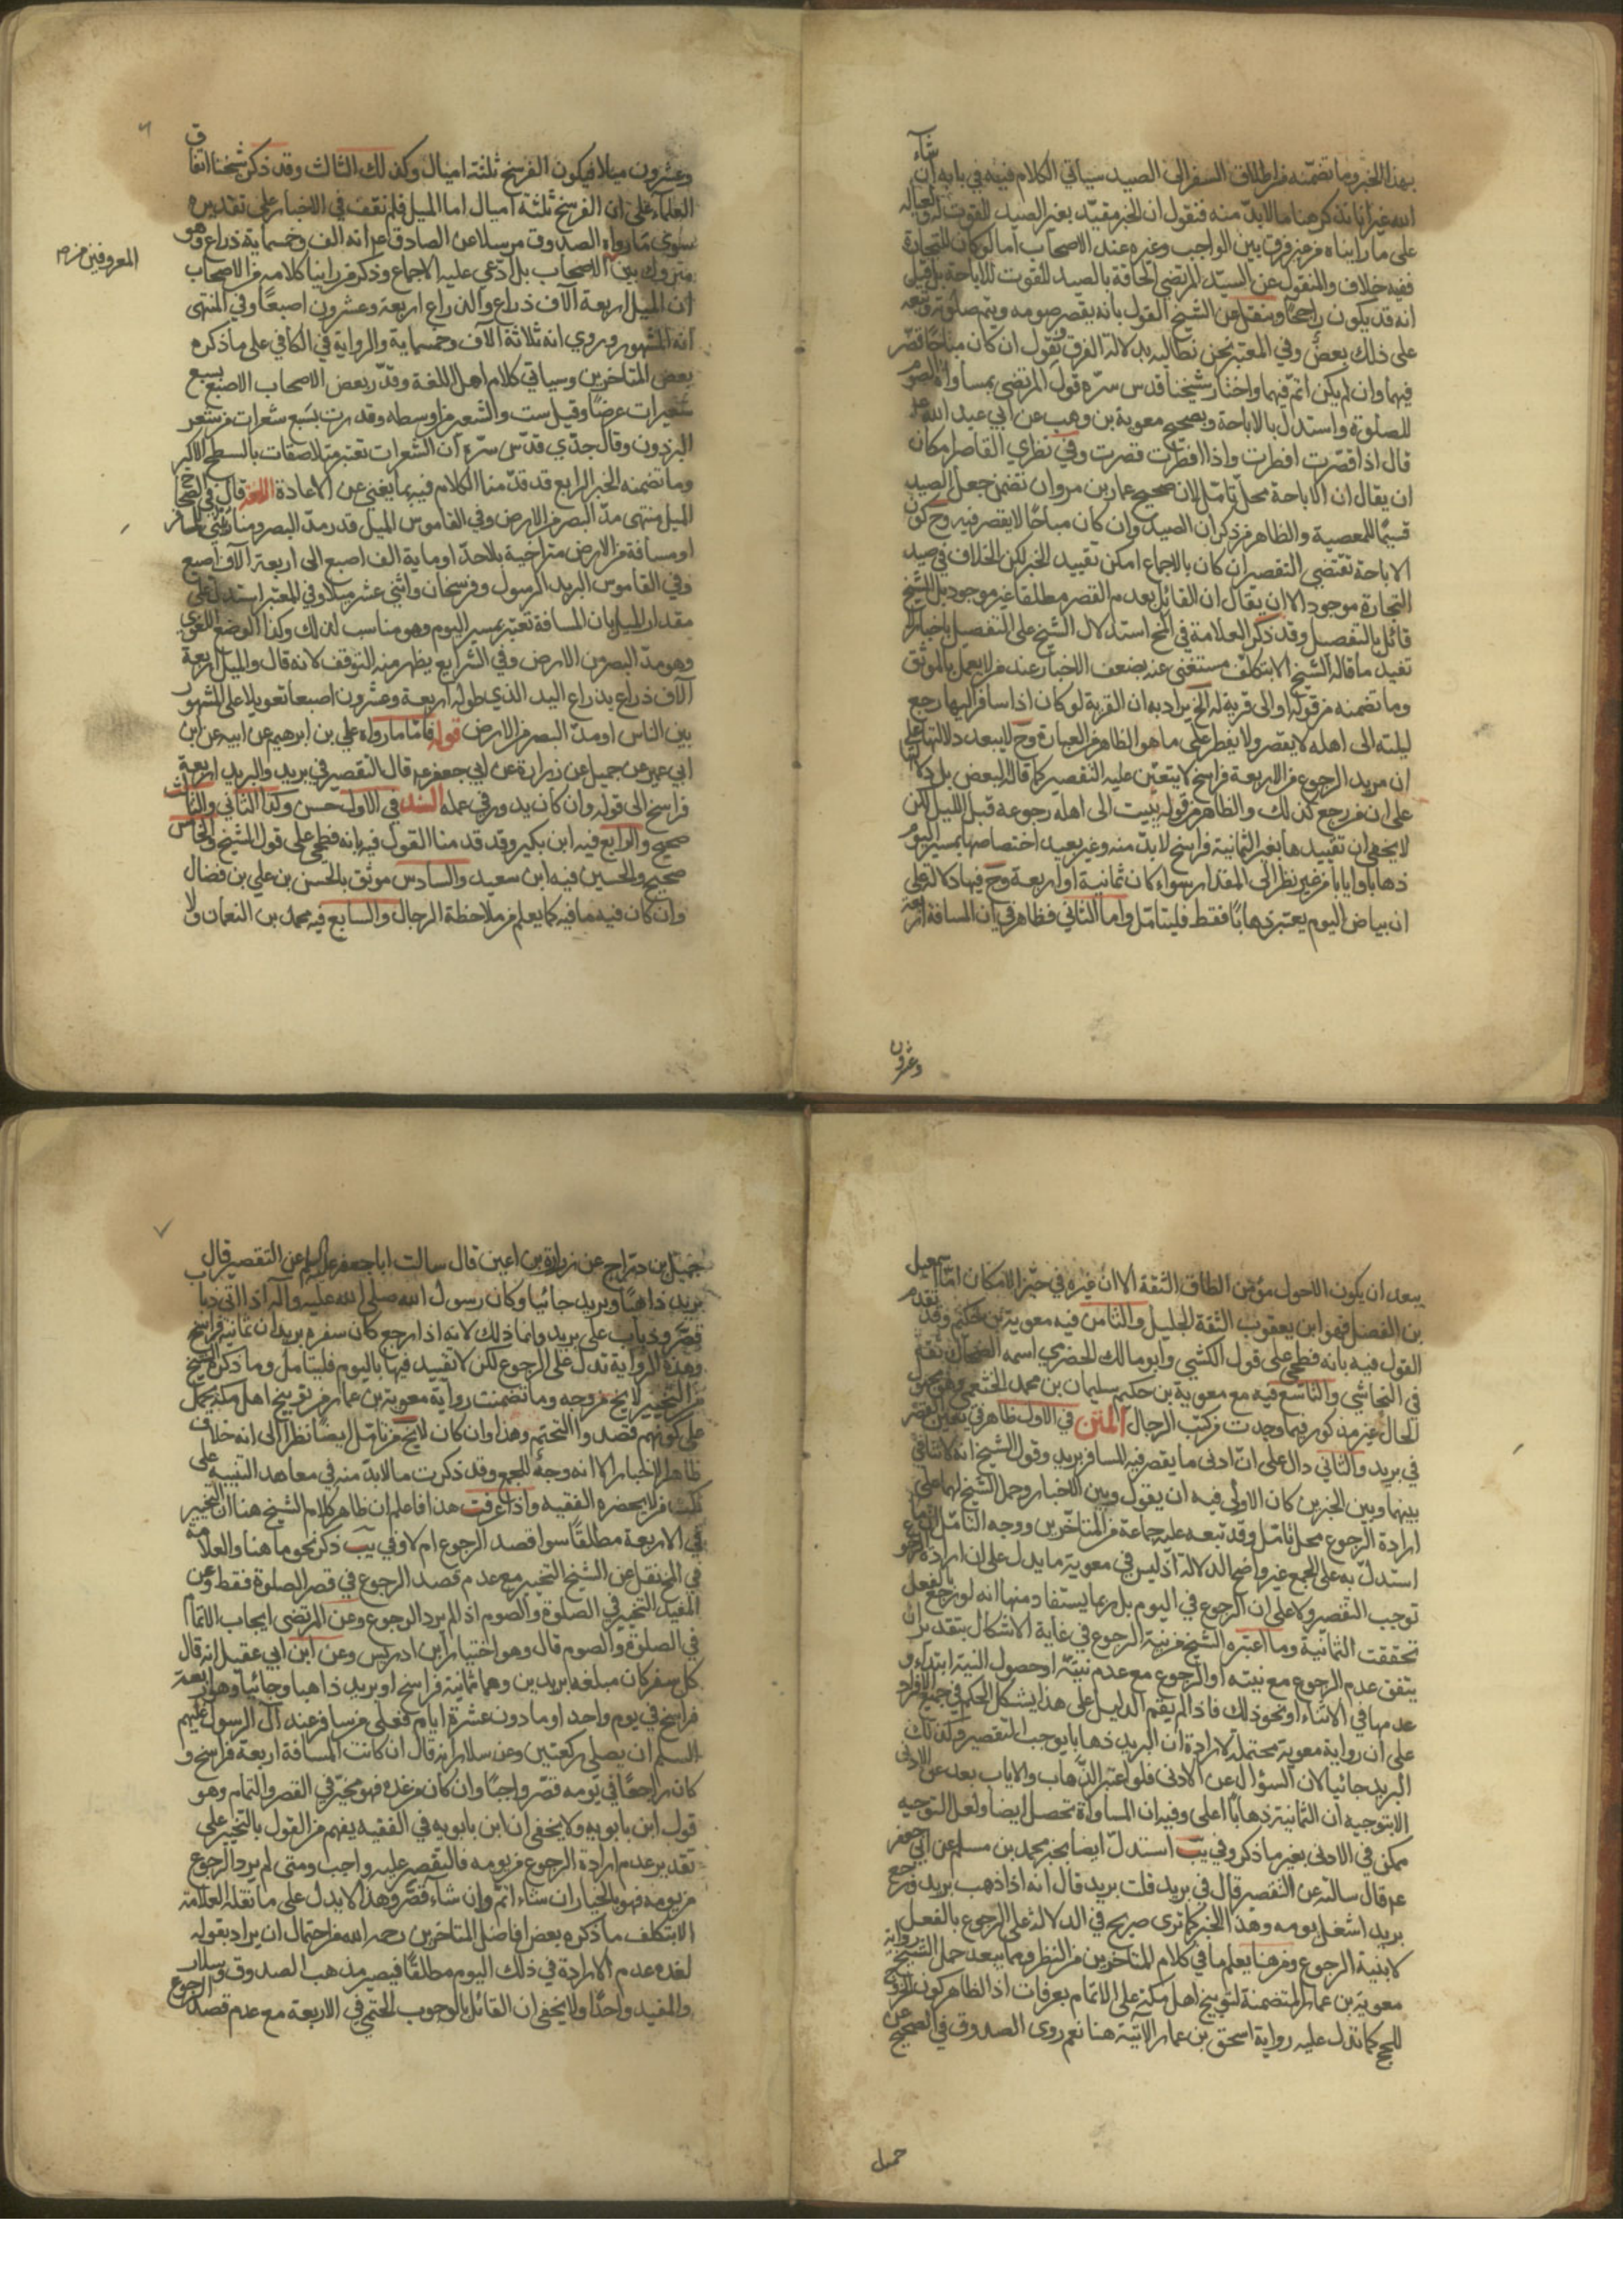 بهذا الخبر وما تضمنه من اطلاق السفر الى الصيد سياتي الكلام فيه في بابه ان شاء
الله غير انا نذكر هنا ما لا بد منه فنقول ان الخبر مقيد بغير الصيد للقوت له ولعياله
على ما رايناه من غير فرق بين الواجب وغيره عند الاصحاب اما لو كان للتجارة
ففيه خلاف والمنقول عن السيد المرتضى الحاقه بالصيد للقوت للاباحة بل قيل
انه قد يكون راجحا وينقل عن الشيخ القول بانه يقصر صومه ويتم صلوته وتبعه
على ذلك بعض وفي المعتبر نحن نطالبه بدلالة الفرق ونقول ان كان مباحا قصر
فيهما وان لم يكن اتم فيهما واختار شيخنا قدس سره قول المرتضى بمساواة الصوم
للصلوة واستدل بالاباحة وبصحيح معوية بن وهب عن ابي عبد الله ع
قال اذا قصرت افطرت واذا افطرت قصرت وفي نظري القاصر امكان
ان يقال ان الاباحة محل تامل لان صحيح عمار بن مروان تضمن جعل الصيد
قسيما للمعصية والظاهر من ذكر ان الصيد وان كان مباحا لا يقصر فيه وح كون
الاباحة تقتضي التقصير ان كان بالاجماع امكن تقييد الخبر لكن الخلاف في صيد
التجارة موجود الا ان يقال ان القائل بعدم القصر مطلقا غير موجود بل الشيخ
قائل بالتفصيل وقد ذكر العلامة في المخ استدلال الشيخ على التفصيل باخبار لا
تفيد ما قاله الشيخ الا بتكلف مستغنى عنه بضعف الاخبار عند من لا يعمل بالموثق
وما تضمنه من قوله او الى قرية له الخ يراد به ان القرية لو كان اذا سافر اليها رجع
ليلته الى اهله لا يقصر ولا يفطر على ما هو الظاهر من العبارة وح لا يبعد دلالتها على
ان مريد الرجوع من الاربعة فراسخ لا يتعين عليه التقصير كما قاله البعض بل دلالتها
على ان من رجع كذلك والظاهر من قوله يبيت الى اهله رجوعه قبل الليل لكن
لا يخفى ان تقييدها بغير الثمانية فراسخ لا بد منه وغير بعيد اختصاصها بمسير اليوم
ذهابا وايابا من غير نظر الى المقدار سواء كان ثمانية او اربعة وح فيها دلالة على
ان بياض اليوم يعتبر ذهابا فقط فليتامل واما الثاني فظاهر في ان المسافة اربعة
وعشرون
وعشرون ميلا فيكون الفرسخ ثلثة اميال وكذلك الثالث وقد ذكر شيخنا اتفاق
العلماء على ان الفرسخ ثلثة اميال اما الميل فلم نقف في الاخبار على تقديره
سوى ما رواه الصدوق مرسلا عن الصادق ع انه الف وخمسماية ذراع وهو
متروك بين الاصحاب بل ادعي عليه الاجماع وذكر من راينا كلامه من الاصحاب
المعروفين منهم
ان الميل اربعة آلاف ذراع والذراع اربعة وعشرون اصبعا وفي المنتهى
انه المشهور وروي انه ثلاثة آلاف وخمسماية والرواية في الكافي على ما ذكره
بعض المتاخرين وسياتي كلام اهل اللغة وقدر بعض الاصحاب الاصبع بسبع
شعيرات عرضا وقيل ست والشعير من اوسطه وقدرت بسبع شعرات من شعر
البرذون وقال جدي قدس سره ان الشعرات تعتبر متلاصقات بالسطح الاكبر
وما تضمنه الخبر الرابع قد قدمنا الكلام فيه بما يغني عن الاعادة اللغة قال في الصحاح
الميل منتهى مد البصر من الارض وفي القاموس الميل قدر مد البصر ومنار يبنى للمسافر
او مسافة من الارض متراخية بلا حد او ماية الف اصبع الى اربعة آلاف اصبع
وفي القاموس البريد المرسول وفرسخان واثني عشر ميلا وفي المعتبر استدل على
مقدار الميل بان المسافة تعتبر بمسير اليوم وهو مناسب لذلك وكذا الوضع اللغوي
وهو مد البصر من الارض وفي الشرايع يظهر منه التوقف لانه قال والميل اربعة
آلاف ذراع بذراع اليد الذي طوله اربعة وعشرون اصبعا تعويلا على المشهور
بين الناس او مد البصر من الارض قوله فاما ما رواه علي بن ابرهيم عن ابيه عن ابن
ابي عمير عن جميل عن زرارة عن ابي جعفر ع قال التقصير في بريد والبريد اربعة
فراسخ الى قوله وان كان يدور في عمله السند في الاول حسن وكذا الثاني والثالث
صحيح والرابع فيه ابن بكير وقد قدمنا القول فيه بانه فطحي على قول الشيخ والخامس
صحيح والحسين فيه ابن سعيد والسادس موثق بالحسن بن علي بن فضال
وان كان فيه ما فيه كما يعلم من ملاحظة الرجال والسابع فيه محمد بن النعمان ولا
يبعد ان يكون الاحول مؤمن الطاق الثقة الا ان غيره في حيز الامكان اما اسمعيل
بن الفضل فهو ابن يعقوب الثقة الجليل والثامن فيه معوية بن حكيم وقد تقدم
القول فيه بانه فطحي على قول الكشي وابو مالك الحضرمي اسمه الضحاك ثقة
في النجاشي والتاسع فيه مع معوية بن حكيم سليمان بن محمد الخثعمي وهو مجهول
الحال غير مذكور فيما وجدت من كتب الرجال المتن في الاول ظاهر في تعين القصر
في بريد والثاني دال على ان ادنى ما يقصر فيه المسافر بريد وقول الشيخ انه لا تنافي
بينهما وبين الخبرين كان الاولى فيه ان يقول وبين الاخبار وحمل الشيخ لهما على
ارادة الرجوع محل تامل وقد تبعه عليه جماعة من المتاخرين ووجه التامل ان ما
استدل به على الجمع غير واضح الدلالة اذ ليس في معوية ما يدل على ان ارادة الرجوع
توجب التقصير ولا على ان الرجوع في اليوم بل ربما يستفاد منها انه لو رجع بالفعل
تحققت الثمانية وما اعتبره الشيخ من نية الرجوع في غاية الاشكال بتقدير ان
يتفق عدم الرجوع مع نيته او الرجوع مع عدم نيته او حصول النية ابتداء و
عدمها في الاثناء او نحو ذلك فاذا لم يقم الدليل على هذا يشكل الحكم في جميع الافراد
على ان رواية معوية محتملة لارادة ان البريد ذهابا يوجب التقصير وكذلك
البريد جائيا لان السؤال عن الادنى فلو اعتبر الذهاب والاياب بعد عن الادنى
الا بتوجيه ان الثمانية ذهابا اعلى وفيه ان المساواة تحصل ايضا ولعل التوجيه
ممكن في الادنى بغير ما ذكر وفي يب استدل ايضا بخبر محمد بن مسلم عن ابي جعفر
ع قال سالته عن التقصير قال في بريد قلت بريد قال انه اذا ذهب بريد ورجع
بريد اشغل يومه وهذا الخبر كما ترى صريح في الدلالة على الرجوع بالفعل
لا بنية الرجوع ومن هنا يعلم ما في كلام المتاخرين من النظر ومما يبعد حمل الشيخ رواية
معوية بن عمار المتضمنة لتوبيخ اهل مكة على الاتمام بعرفات اذ الظاهر كون الخروج
للحج كما تدل عليه رواية اسحق بن عمار الآتية هنا نعم روى الصدوق في الصحيح عن
جميل
جميل بن دراج عن زرارة بن اعين قال سالت ابا جعفر عليه السلم عن التقصير قال
بريد ذاهبا وبريد جائيا وكان رسول الله صلى الله عليه وآله اذا اتى ذبابا
قصر وذباب على بريد وانما ذلك لانه اذا رجع كان سفره بريدان ثمانية فراسخ
وهذه الرواية تدل على الرجوع لكن لا تقييد فيها باليوم فليتامل وما ذكره الشيخ
من التخيير لا يخ من وجه وما تضمنت رواية معوية بن عمار من توبيخ اهل مكة يحمل
على كونهم قصدوا التحتم وهذا وان كان لا يخ من تامل ايضا نظرا الى انه خلاف
ظاهر الاخبار الا انه وجه للجمع وقد ذكرت ما لا بد منه في معاهد التنبيه على
كتاب من لا يحضره الفقيه واذا عرفت هذا فاعلم ان ظاهر كلام الشيخ هنا ان التخيير
في الاربعة مطلقا سوا قصد الرجوع ام لا وفي يب ذكر نحو ما هنا والعلامة
في المخ نقل عن الشيخ التخيير مع عدم قصد الرجوع في قصر الصلوة فقط وعن
المفيد التخيير في الصلوة والصوم اذا لم يرد الرجوع وعن المرتضى ايجاب الاتمام
في الصلوة والصوم قال وهو اختيار ابن ادريس وعن ابن ابي عقيل انه قال
كل سفر كان مبلغه بريدين وهما ثمانية فراسخ او بريد ذاهبا وجائيا وهو اربعة
فراسخ في يوم واحد او ما دون عشرة ايام فعلى من سافر عند آل الرسول عليهم
السلم ان يصلي ركعتين وعن سلار انه قال ان كانت المسافة اربعة فراسخ و
كان راجعا في يومه قصر واجبا وان كان من غده فهو مخير في القصر والتمام وهو
قول ابن بابويه ولا يخفى ان ابن بابويه في الفقيه يفهم من القول بالتخيير على
تقدير عدم ارادة الرجوع من يومه فالتقصير عليه واجب ومتى لم يرد الرجوع
من يومه فهو بالخيار ان شاء اتم وان شاء قصر وهذا لا يدل على ما نقله العلامة
الا بتكلف ما ذكره بعض افاضل المتاخرين رحمه الله من احتمال ان يراد بقوله
لغده عدم الارادة في ذلك اليوم مطلقا فيصير مذهب الصدوق وسلار
والمفيد واحدا ولا يخفى ان القائل بالوجوب الحتمي في الاربعة مع عدم قصد الرجوع